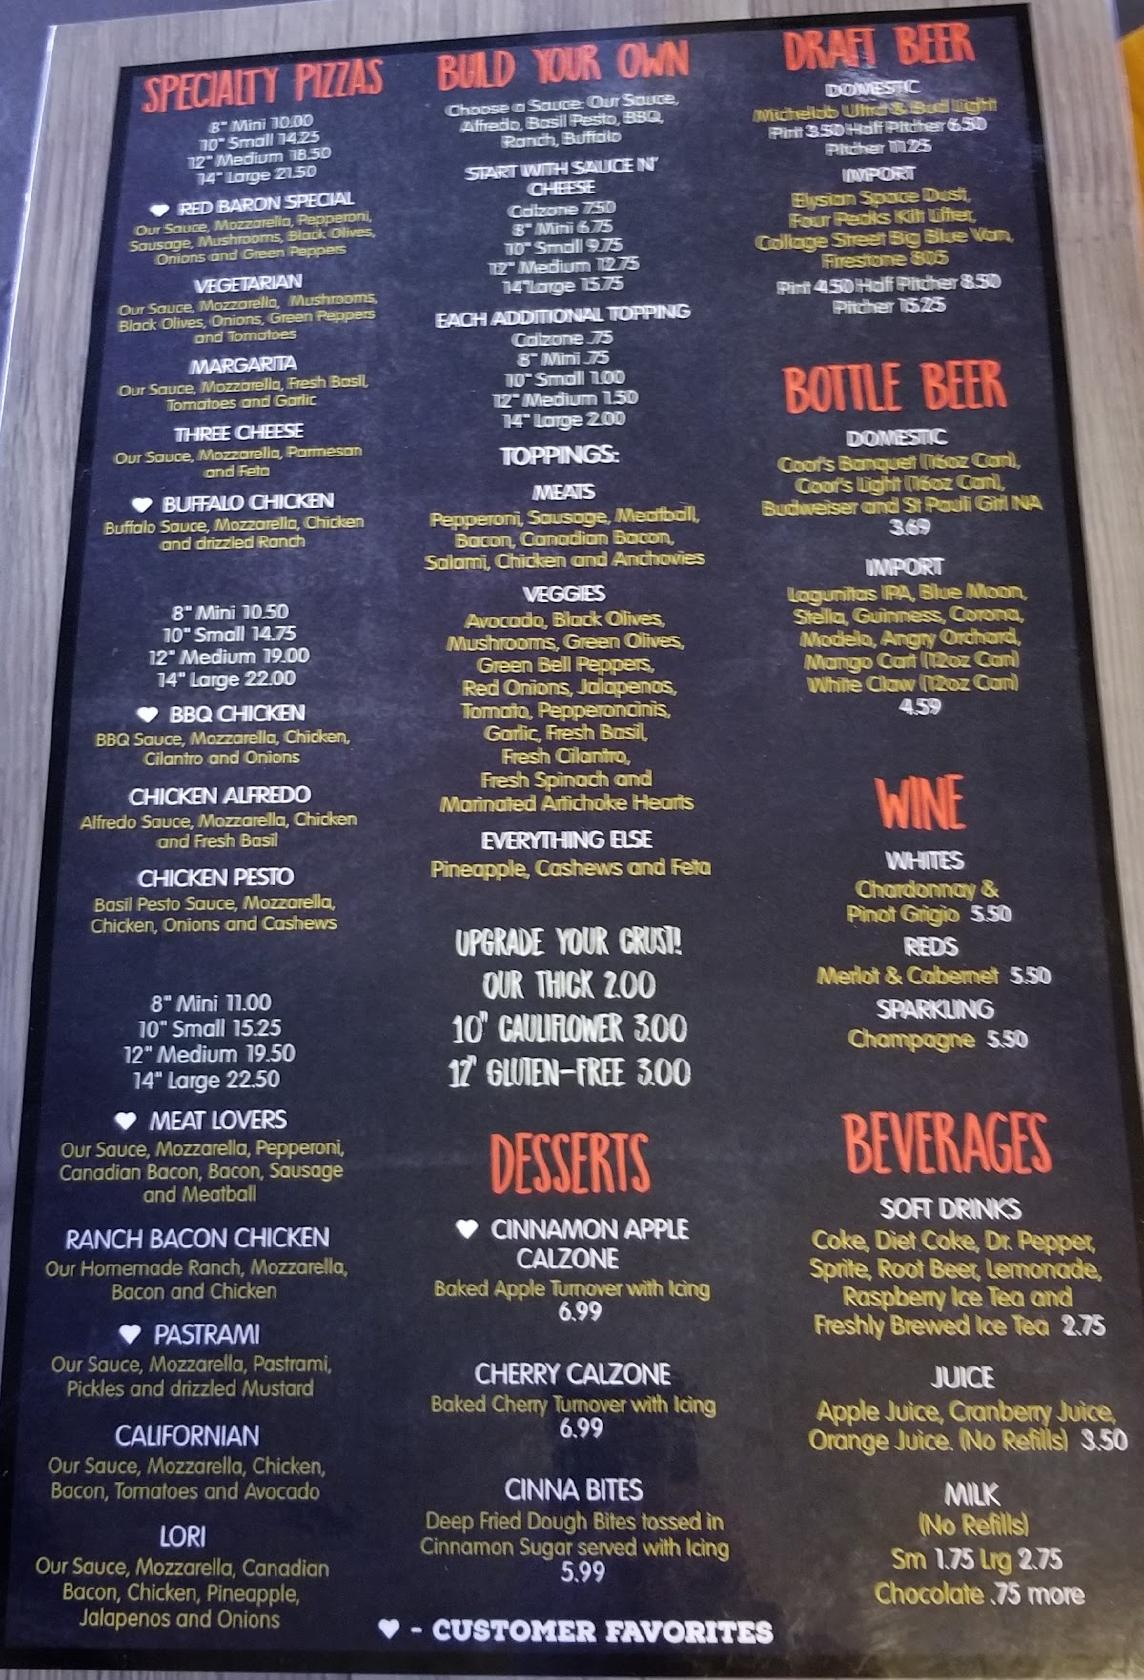 SPECIALTY PIZZAS
8" Mini 10.00
10" Small 14.25
12" Medium 18.50
14" Large 21.50
♥ RED BARON SPECIAL
Our Sauce, Mozzarella, Pepperoni,
Sausage, Mushrooms, Black Olives,
Onions and Green Peppers
VEGETARIAN
Our Sauce, Mozzarella, Mushrooms,
Black Olives, Onions, Green Peppers
and Tomatoes
MARGARITA
Our Sauce, Mozzarella, Fresh Basil,
Tomatoes and Garlic
THREE CHEESE
Our Sauce, Mozzarella, Parmesan
and Feta
♥ BUFFALO CHICKEN
Buffalo Sauce, Mozzarella, Chicken
and drizzled Ranch
8" Mini 10.50
10" Small 14.75
12" Medium 19.00
14" Large 22.00
♥ BBQ CHICKEN
BBQ Sauce, Mozzarella, Chicken,
Cilantro and Onions
CHICKEN ALFREDO
Alfredo Sauce, Mozzarella, Chicken
and Fresh Basil
CHICKEN PESTO
Basil Pesto Sauce, Mozzarella,
Chicken, Onions and Cashews
8" Mini 11.00
10" Small 15.25
12" Medium 19.50
14" Large 22.50
♥ MEAT LOVERS
Our Sauce, Mozzarella, Pepperoni,
Canadian Bacon, Bacon, Sausage
and Meatball
RANCH BACON CHICKEN
Our Homemade Ranch, Mozzarella,
Bacon and Chicken
♥ PASTRAMI
Our Sauce, Mozzarella, Pastrami,
Pickles and drizzled Mustard
CALIFORNIAN
Our Sauce, Mozzarella, Chicken,
Bacon, Tomatoes and Avocado
LORI
Our Sauce, Mozzarella, Canadian
Bacon, Chicken, Pineapple,
Jalapenos and Onions
BUILD YOUR OWN
Choose a Sauce: Our Sauce,
Alfredo, Basil Pesto, BBQ,
Ranch, Buffalo
START WITH SAUCE N'
CHEESE
Calzone 7.50
8" Mini 6.75
10" Small 9.75
12" Medium 12.75
14"Large 15.75
EACH ADDITIONAL TOPPING
Calzone .75
8" Mini .75
10" Small 1.00
12" Medium 1.50
14" Large 2.00
TOPPINGS:
MEATS
Pepperoni, Sausage, Meatball,
Bacon, Canadian Bacon,
Salami, Chicken and Anchovies
VEGGIES
Avocado, Black Olives,
Mushrooms, Green Olives,
Green Bell Peppers,
Red Onions, Jalapenos,
Tomato, Pepperoncinis,
Garlic, Fresh Basil,
Fresh Cilantro,
Fresh Spinach and
Marinated Artichoke Hearts
EVERYTHING ELSE
Pineapple, Cashews and Feta
UPGRADE YOUR CRUST!
OUR THICK 2.00
10" CAULIFLOWER 3.00
12" GLUTEN-FREE 3.00
DESSERTS
♥ CINNAMON APPLE
CALZONE
Baked Apple Turnover with Icing
6.99
CHERRY CALZONE
Baked Cherry Turnover with Icing
6.99
CINNA BITES
Deep Fried Dough Bites tossed in
Cinnamon Sugar served with Icing
5.99
DRAFT BEER
DOMESTIC
Michelob Ultra & Bud Light
Pint 3.50 Half Pitcher 6.50
Pitcher 11.25
IMPORT
Elysian Space Dust,
Four Peaks Kilt Lifter,
Collage Street Big Blue Van,
Firestone 805
Pint 4.50 Half Pitcher 8.50
Pitcher 15.25
BOTTLE BEER
DOMESTIC
Coor's Banquet (16oz Can),
Coor's Light (16oz Can),
Budweiser and St Pauli Girl NA
3.69
IMPORT
Lagunitas IPA, Blue Moon,
Stella, Guinness, Corona,
Modelo, Angry Orchard,
Mango Cart (12oz Can)
White Claw (12oz Can)
4.59
WINE
WHITES
Chardonnay &
Pinot Grigio 5.50
REDS
Merlot & Cabernet 5.50
SPARKLING
Champagne 5.50
BEVERAGES
SOFT DRINKS
Coke, Diet Coke, Dr. Pepper,
Sprite, Root Beer, Lemonade,
Raspberry Ice Tea and
Freshly Brewed Ice Tea 2.75
JUICE
Apple Juice, Cranberry Juice,
Orange Juice. (No Refills) 3.50
MILK
(No Refills)
Sm 1.75 Lrg 2.75
Chocolate .75 more
♥ - CUSTOMER FAVORITES